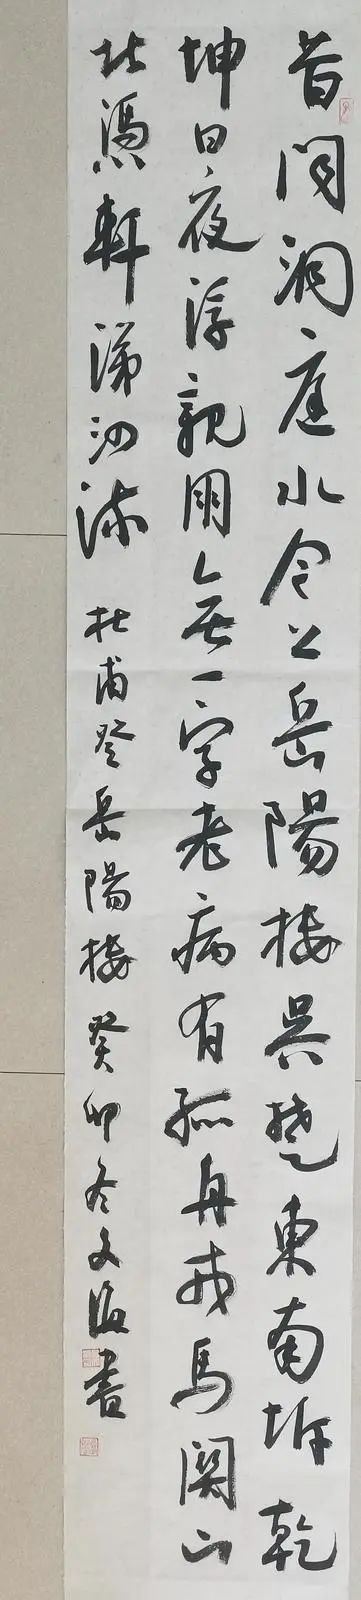 昔闻洞庭水今上岳陽楼吴楚東南坼乾
坤日夜浮親朋無一字老病有孤舟戎馬関山
北憑軒涕泗流 杜甫登岳陽楼 癸卯冬文書